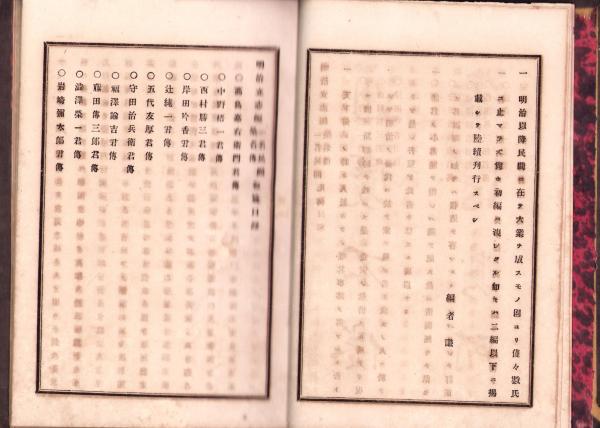 一 明治以降民間ニ在テ大業ヲ成スモノ固ヨリ僅々數氏
ニ止マラズ 初編 二編以下ヲ揭
載シテ陸續刊行スベシ
編者識
明治立志編 目錄
○中野梧一君傳
○高島嘉右衛門君傳
○西村勝三君傳
○岸田吟香君傳
○辻純一君傳
○五代友厚君傳
○守田治兵衛君傳
○福澤諭吉君傳
○藤田傳三郎君傳
○澁澤榮一君傳
○岩崎彌太郎君傳